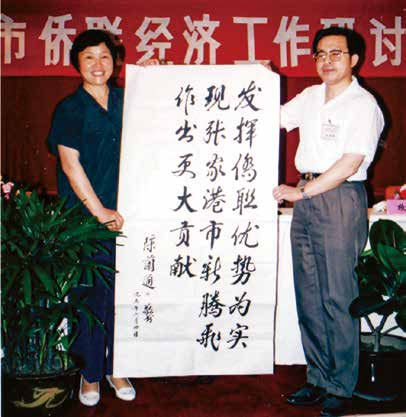 市侨联经济工作研讨
发揮僑联优势为实
现张家港市新腾飞
作出更大贡献